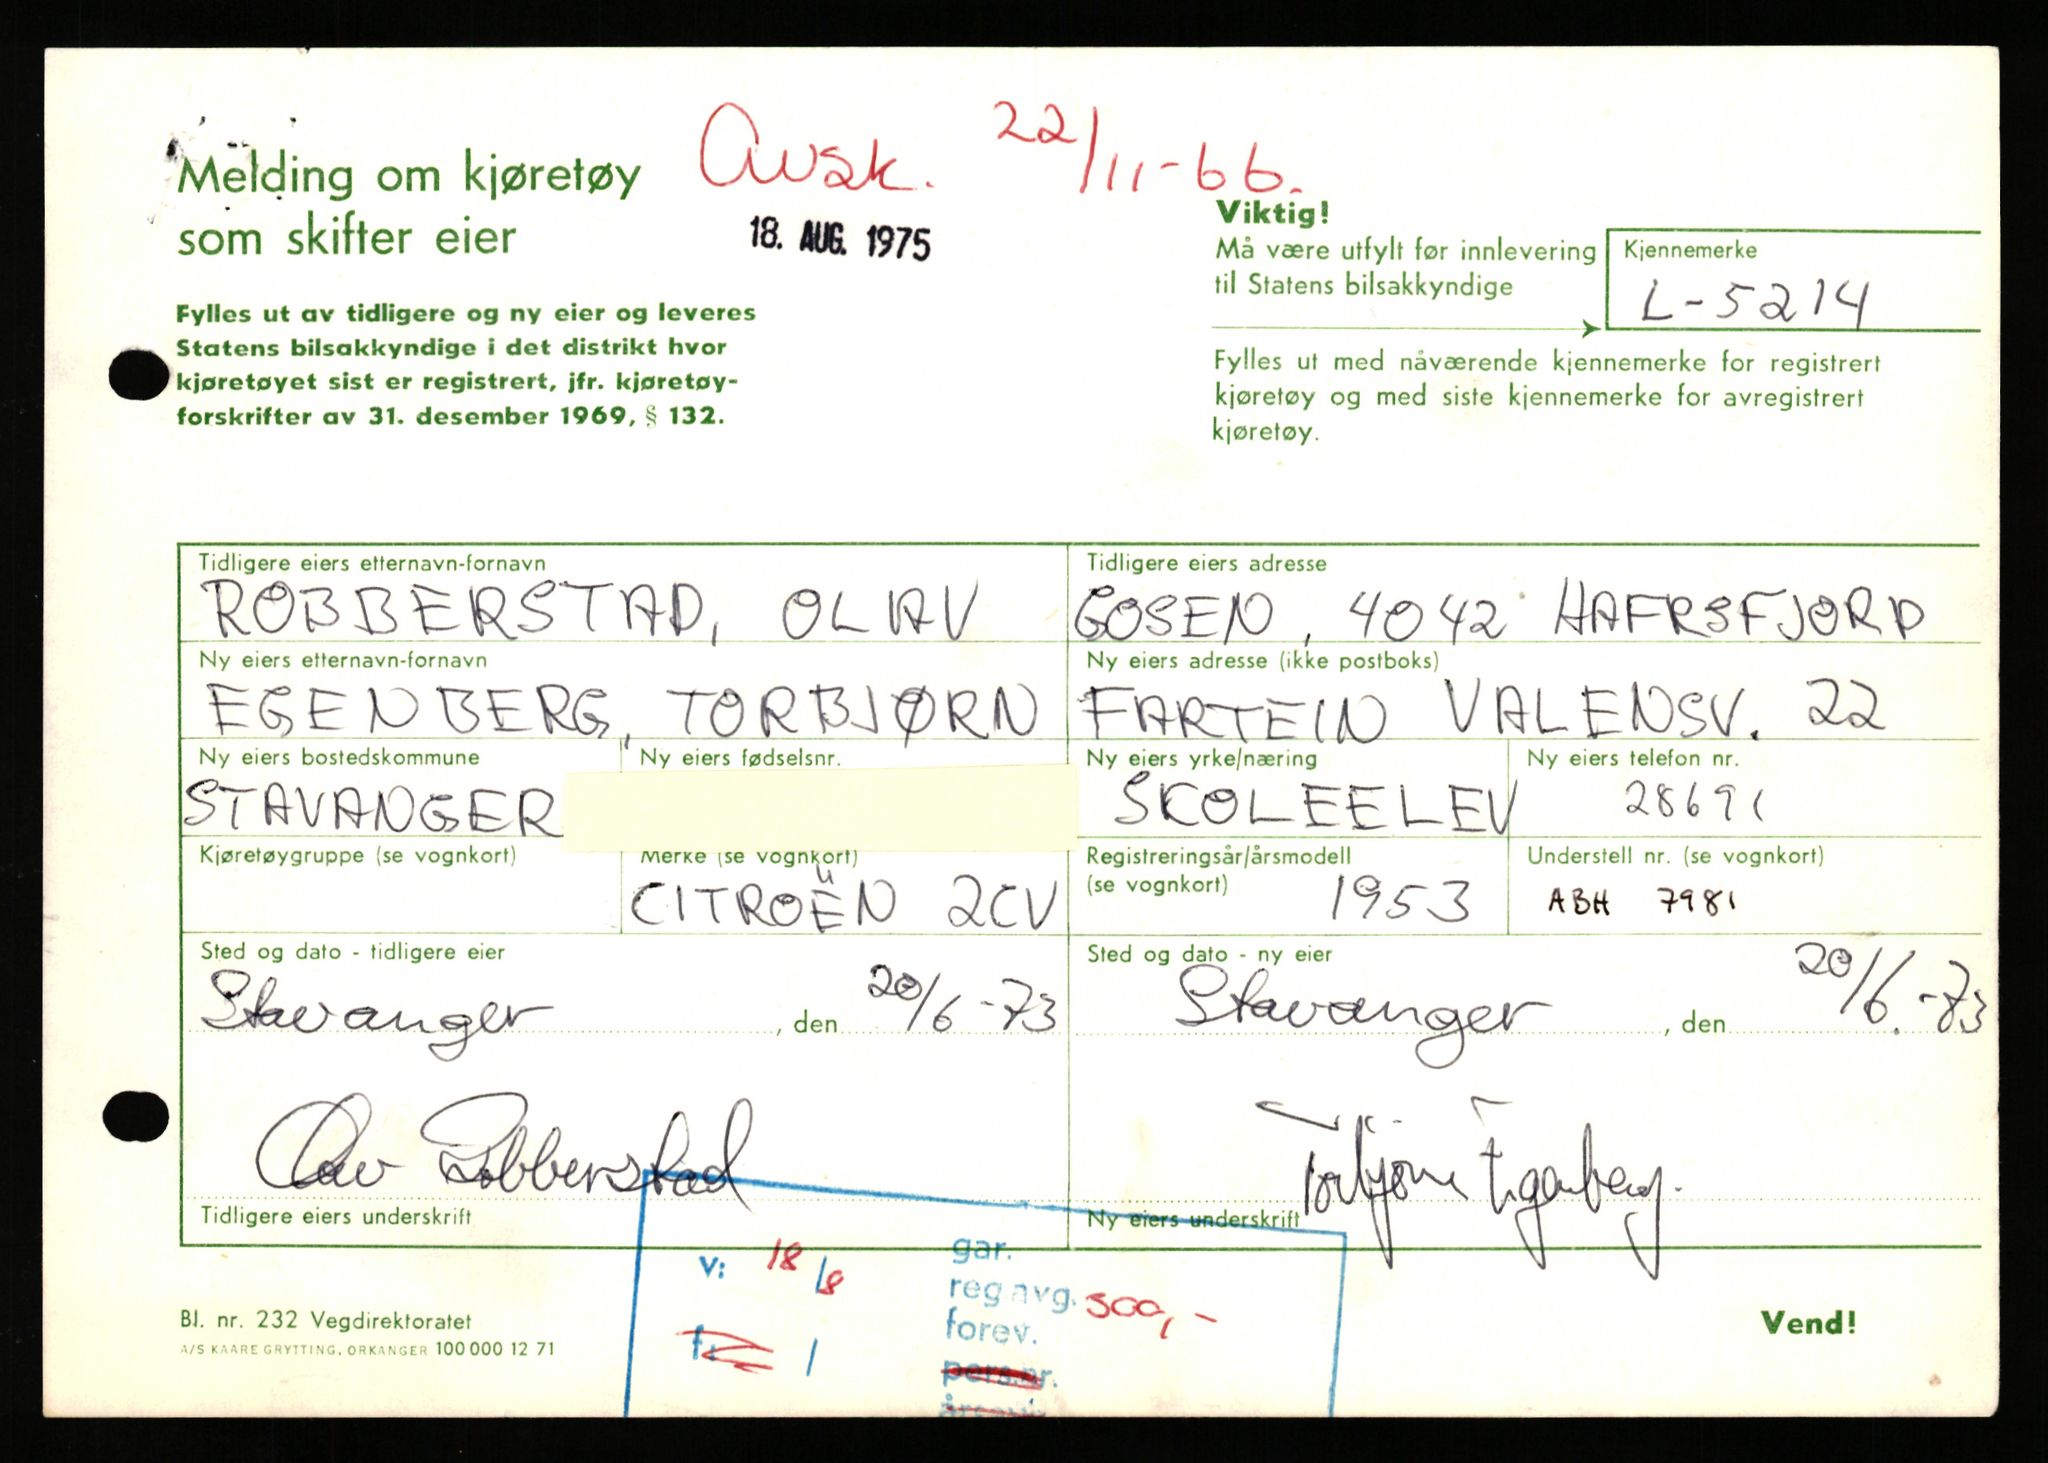 Avsk. 22/11-66.
Melding om kjøretøy
som skifter eier
18. AUG. 1975
Fylles ut av tidligere og ny eier og leveres
Statens bilsakkyndige i det distrikt hvor
kjøretøyet sist er registrert, jfr. kjøretøy-
forskrifter av 31. desember 1969, § 132.
Viktig!
Må være utfylt før innlevering
til Statens bilsakkyndige
Kjennemerke
L-5214
Fylles ut med nåværende kjennemerke for registrert
kjøretøy og med siste kjennemerke for avregistrert
kjøretøy.
Tidligere eiers etternavn-fornavn
ROBBERSTAD, OLAV
Tidligere eiers adresse
GOSEN, 4042 HAFRSFJORD
Ny eiers etternavn-fornavn
EGENBERG, TORBJØRN
Ny eiers adresse (ikke postboks)
FARTEIN VALENSV. 22
Ny eiers bostedskommune
STAVANGER
Ny eiers fødselsnr.
Ny eiers yrke/næring
SKOLEELEV
Ny eiers telefon nr.
28691
Kjøretøygruppe (se vognkort)
Merke (se vognkort)
CITROËN 2CV
Registreringsår/årsmodell
(se vognkort)
1953
Understell nr. (se vognkort)
ABH 7981
Sted og dato - tidligere eier
Stavanger, den 20/6-73
Sted og dato - ny eier
Stavanger, den 20/6.-73
Olav Robberstad
Tidligere eiers underskrift
Torbjørn Egenberg.
Ny eiers underskrift
v: 18/8
gar.
reg.avg. 500,-
forev.
f: /
pers.nr.
Bl. nr. 232 Vegdirektoratet
A/S KAARE GRYTTING, ORKANGER 100 000 12 71
Vend!